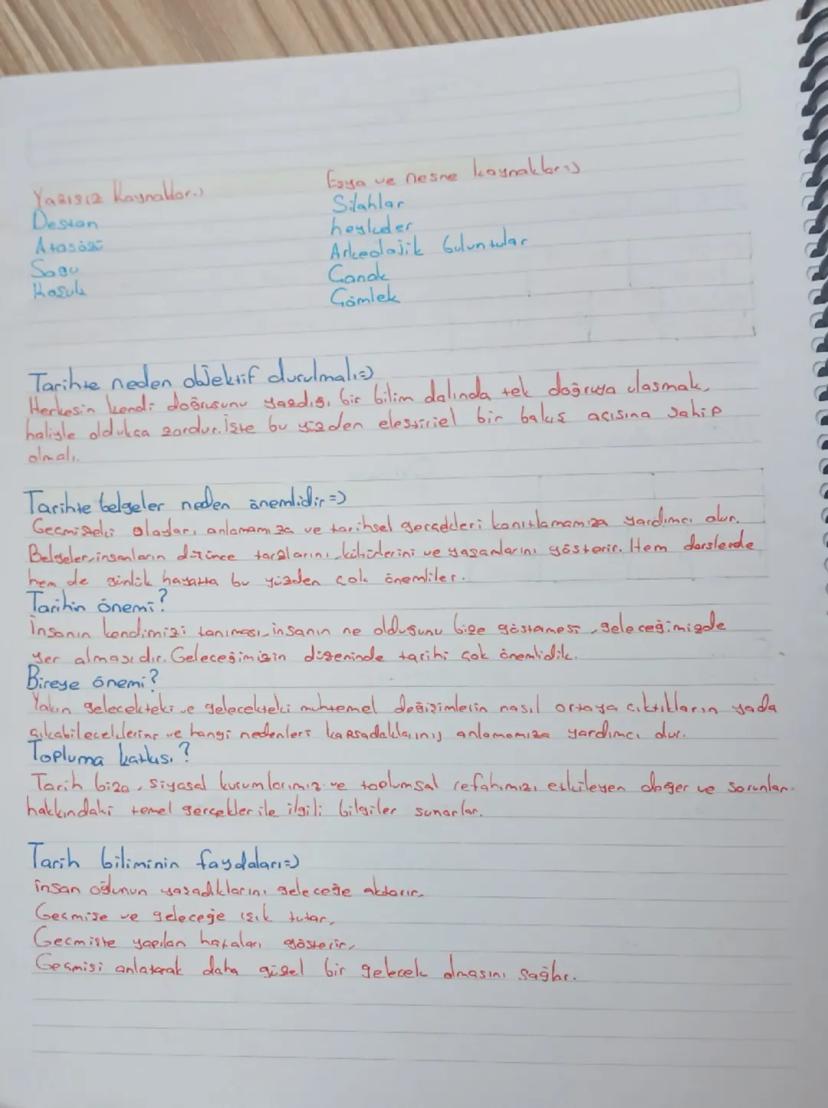 Yazısız kaynaklar:)
Eşya ve nesne kaynakları:)
Destan
Silahlar
Atasözü
heykeller
Sagu
Arkeolojik buluntular
Koşuk
Çanak
Gömlek
Tarihte neden objektif durulmalı=)
Herkesin kendi doğrusunu yazdığı bir bilim dalında tek doğruya ulaşmak,
haliyle oldukça zordur. İşte bu yüzden eleştiriel bir bakış açısına sahip
olmalı.
Tarihte belgeler neden önemlidir=)
Geçmişteki olayları anlamamıza ve tarihsel gerçekleri kanıtlamamıza yardımcı olur.
Belgeler, insanların düşünce tarzlarını, kültürlerini ve yaşamlarını gösterir. Hem derslerde
hem de günlük hayatta bu yüzden çok önemliler.
Tarihin önemi?
İnsanın kendimizi tanıması, insanın ne olduğunu bize göstermesi, geleceğimizde
yer almasıdır. Geleceğimizin düzeninde tarihi çok önemlidik.
Bireye önemi?
Yakın gelecekteki ve gelecekteki muhtemel değişimlerin nasıl ortaya çıktıkların yada
çıkabileceklerine ve hangi nedenlere kaynaklarını, anlamamıza yardımcı dur.
Topluma katkısı?
Tarih bize, siyasal kurumlarımız ve toplumsal refahımızı etkileyen değer ve sorunlar
hakkındaki temel gerçekler ile ilgili bilgiler sunarlar.
Tarih biliminin faydaları=)
insan oğlunun yaşadıklarını geleceğe aktarır.
Geçmişe ve geleceğe ışık tutar,
Geçmişte yapılan hataları gösterir,
Geçmişi anlatarak daha güzel bir gelecek olmasını sağlar.